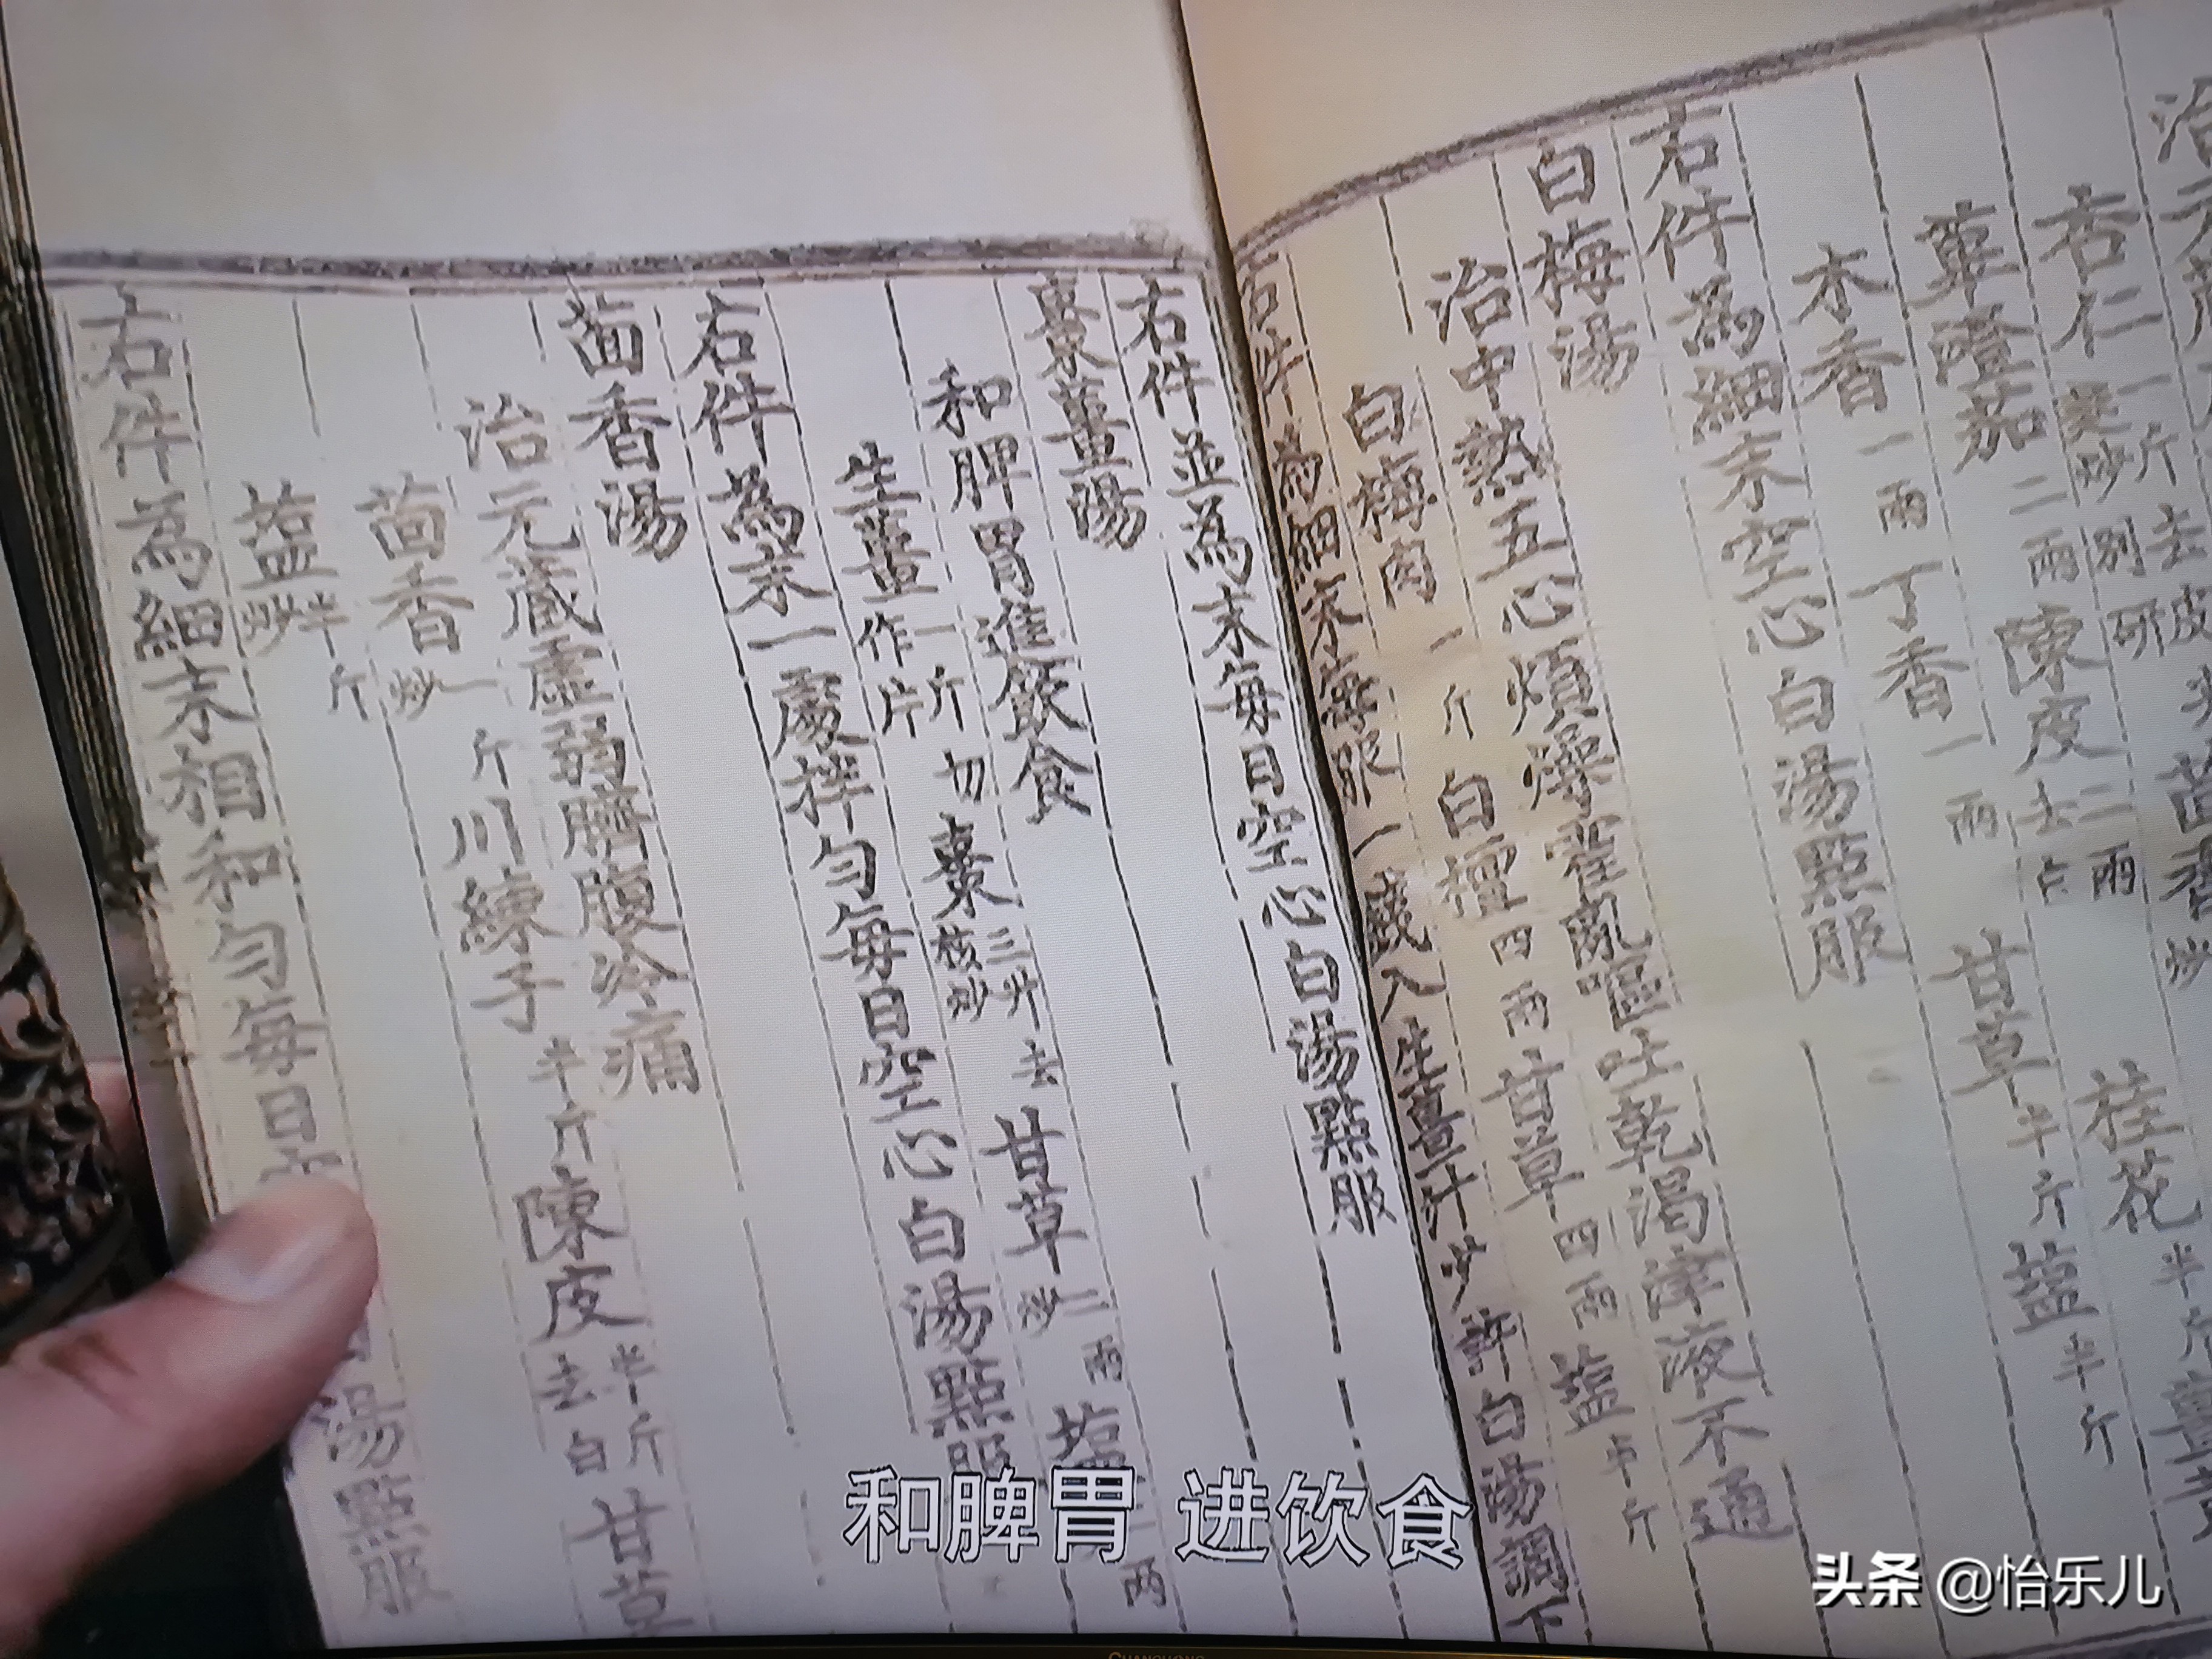 杏仁一斤去皮尖麩炒別研 茴香炒
蓽澄茄二兩 陳皮二兩去白 桂花半斤
木香一兩 丁香一兩 甘草半斤 盐半斤
右件為細末空心白湯點服
白梅湯
治中熱五心煩燥霍亂嘔吐乾渴津液不通
白梅肉一斤 白檀四兩 甘草四兩 盐半斤
右件為細末每服一錢入生薑汁少許白湯調下
右件並為末每日空心白湯點服
棗薑湯
和脾胃進飲食
生薑一斤切作片 棗三升去核炒 甘草二兩炒 盐二两
右件為末一處拌勻每日空心白湯點服
茴香湯
治元蔵虛弱臍腹冷痛
茴香一斤炒 川練子半斤 陳皮半斤去白 甘草
盐半斤炒
右件為細末相和勻每日 湯點服
和脾胃 进饮食
头条 @怡乐儿
CHANGHONG